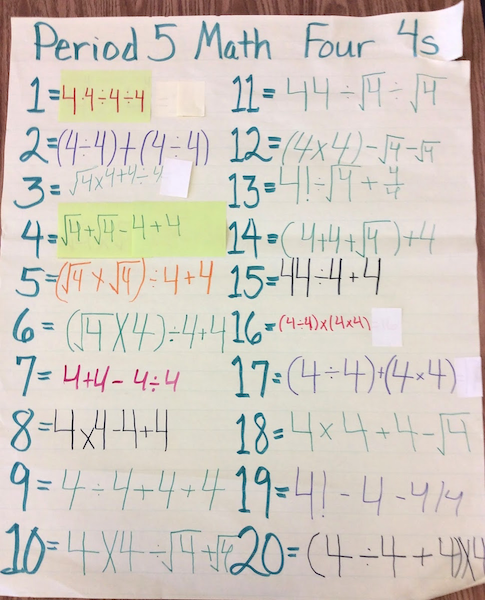 Period 5 Math Four 4s
1= 4·4÷4÷4
2=(4÷4)+(4÷4)
3= √4x4+4÷4
4= √4+√4-4+4
5=(√4x√4)÷4+4
6=(√4X4)÷4+4
7= 4+4-4÷4
8=4x4-4+4
9=4÷4+4+4
10=4X4÷√4+√4
11= 44÷√4÷√4
12=(4x4)-√4-√4
13= 4!÷√4+4/4
14=(4+4+√4)+4
15=44÷4+4
16=(4÷4)x(4x4)
17=(4÷4)+(4x4)
18=4x4+4-√4
19=4!-4-4/4
20=(4÷4+4)X4